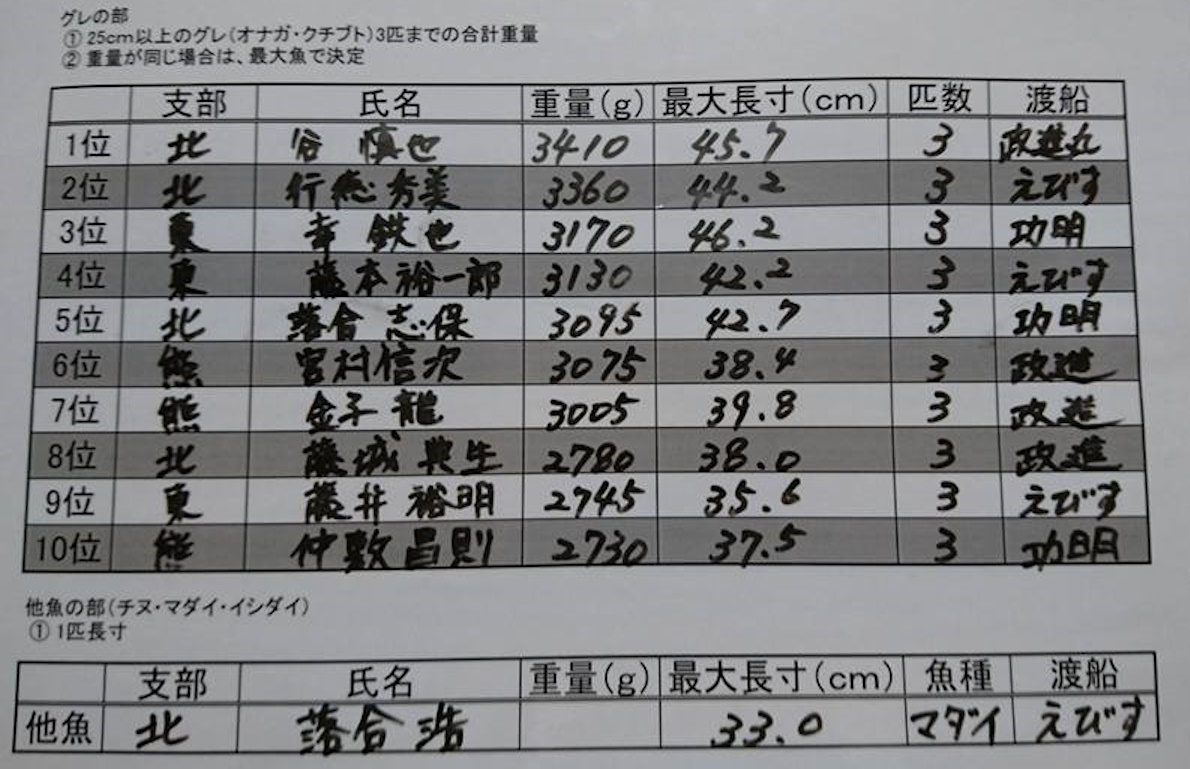 グレの部
① 25cm以上のグレ(オナガ・クチブト)3匹までの合計重量
② 重量が同じ場合は、最大魚で決定
支部 氏名 重量(g) 最大長寸(cm) 匹数 渡船
1位 北 谷 慎也 3410 45.7 3 政進丸
2位 北 行徳秀美 3360 44.2 3 えびす
3位 東 幸 鉄也 3170 46.2 3 功明
4位 東 藤本裕一郎 3130 42.2 3 えびす
5位 北 落合 志保 3095 42.7 3 功明
6位 熊 宮村信次 3075 38.4 3 政進
7位 熊 金子 龍 3005 39.8 3 政進
8位 北 藤城 典生 2780 38.0 3 政進
9位 東 藤井 裕明 2745 35.6 3 えびす
10位 熊 仲敷昌則 2730 37.5 3 功明
他魚の部(チヌ・マダイ・イシダイ)
① 1匹長寸
支部 氏名 重量(g) 最大長寸(cm) 魚種 渡船
他魚 北 落合 浩 33.0 マダイ えびす